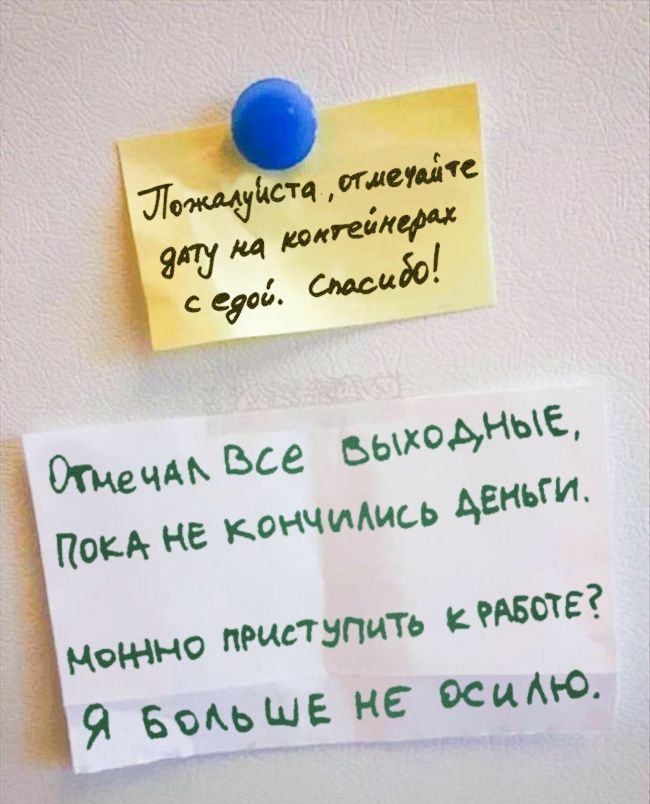 Пожалуйста, отмечайте
дату на контейнерах
с едой. Спасибо!
Отмечал все выходные,
пока не кончились деньги.
Можно приступить к работе?
Я больше не осилю.